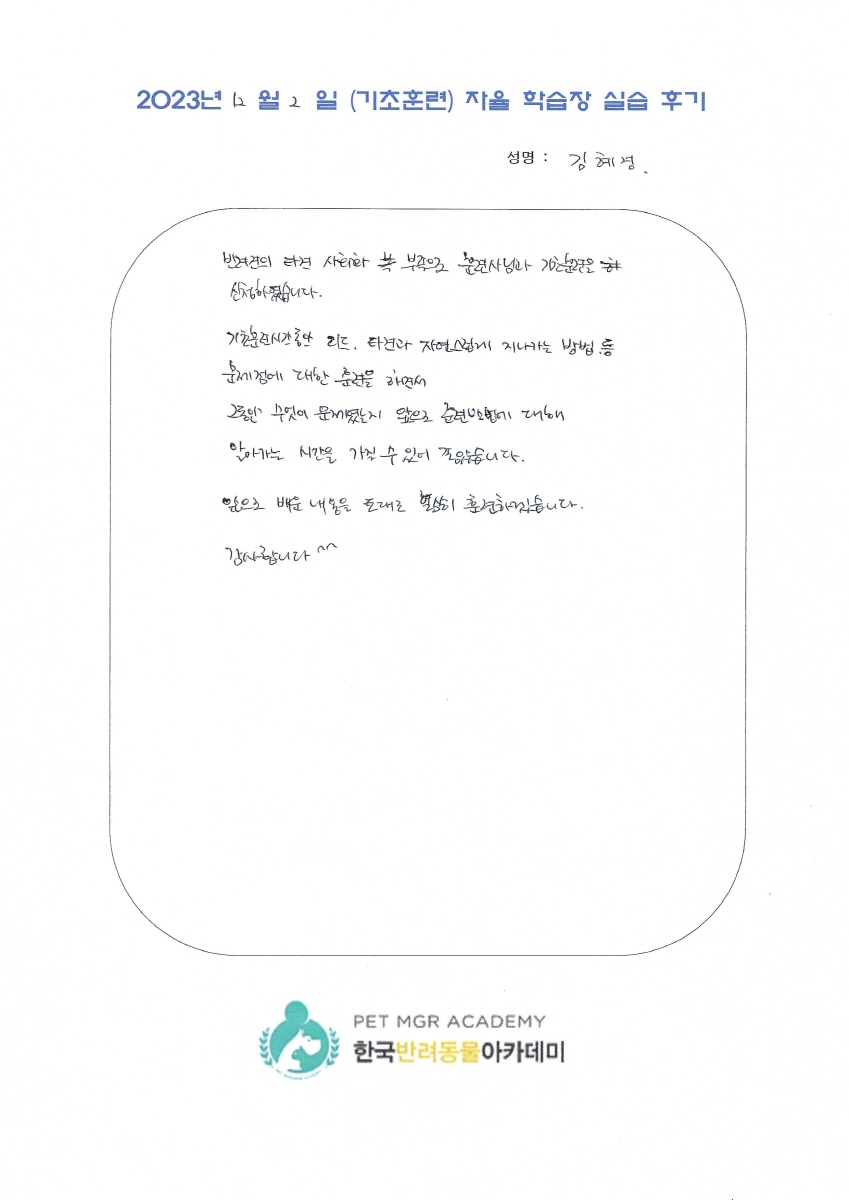 2023년 12 월 2 일 (기초훈련) 자율 학습장 실습 후기
성명 : 김혜경.
반려견의 타견 사회화 부족으로 훈련사님과 기초훈련을
신청하였습니다.
기초훈련시간동안 리드, 타견과 자연스럽게 지나가는 방법 등
문제점에 대한 훈련을 하면서
그동안 무엇이 문제였는지 앞으로 훈련방법에 대해
알아가는 시간을 가질 수 있어 좋았습니다.
앞으로 배운 내용을 토대로 열심히 훈련하겠습니다.
감사합니다 ^^
PET MGR ACADEMY
한국반려동물아카데미